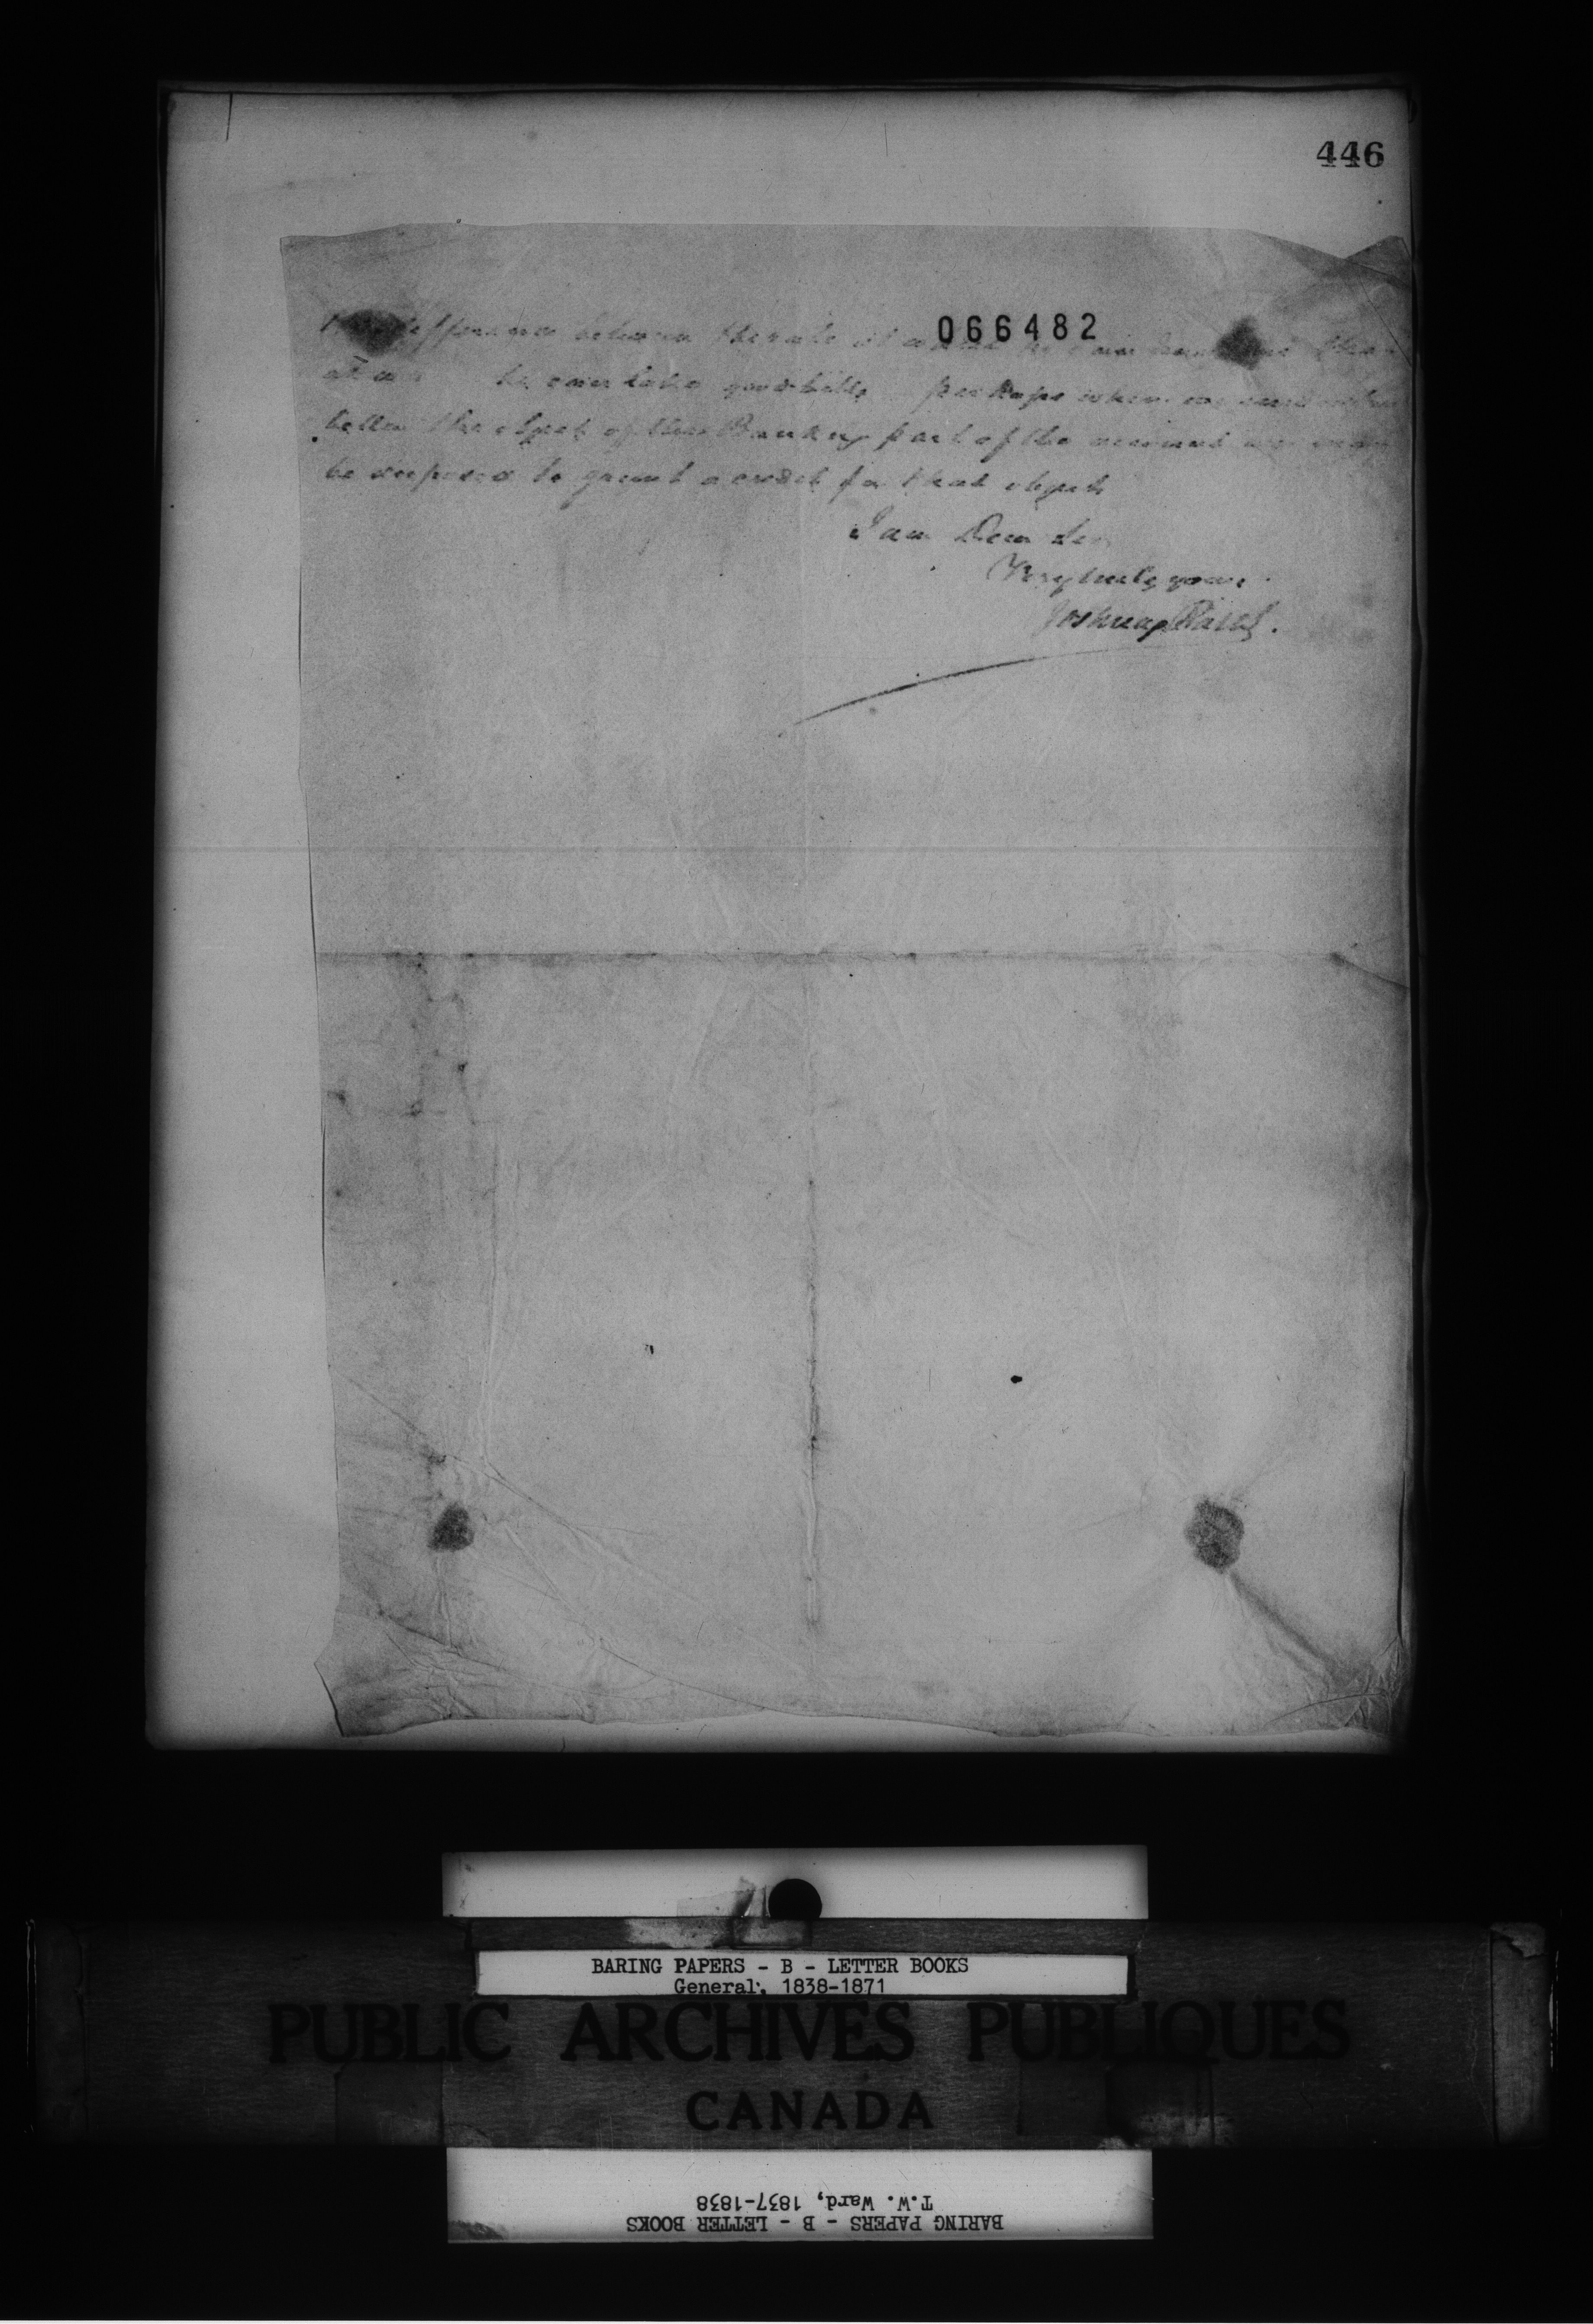 446
066482
difference between the rate at which he can
he can take good bills perhaps when we understand
better the object of this Banking part of the account we may
be disposed to grant a credit for that object
I am Dear Sir
Very truly yours
Joshua Bates.
BARING PAPERS - B - LETTER BOOKS
General, 1838-1871
PUBLIC ARCHIVES PUBLIQUES
CANADA
T.W. Ward, 1837-1838
BARING PAPERS - B - LETTER BOOKS